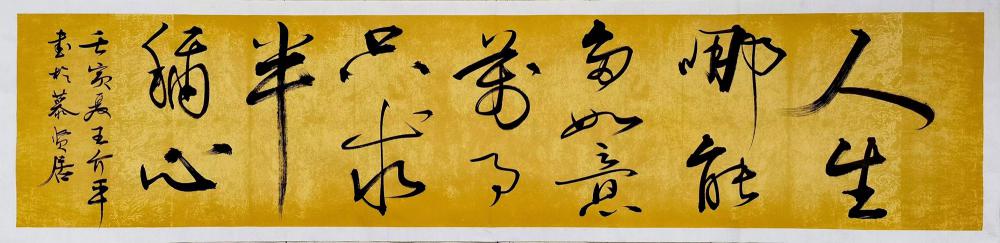 人生
哪能
多如意
萬事
只求
半
稱心
壬寅夏王介平
書於慕賢居